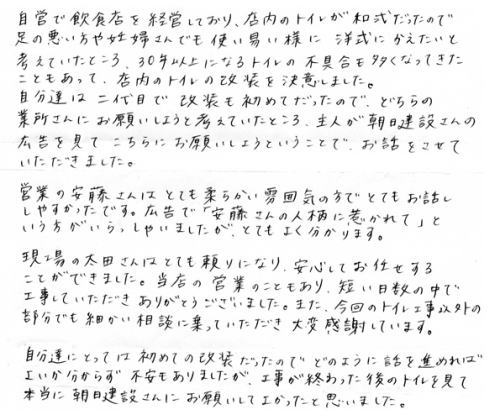 自営で飲食店を経営しており、店内のトイレが和式だったので
足の悪い方や妊婦さんでも使い易い様に 洋式にかえたいと
考えていたところ、30年以上になるトイレの不具合も多くなってきた
こともあって、店内のトイレの改装を決意しました。
自分達は二代目で改装も初めてだったので、どちらの
業所さんにお願いしようと考えていたところ、主人が朝日建設さんの
広告を見て こちらにお願いしようということで、お話をさせて
いただきました。
営業の安藤さんは とても柔らかい雰囲気の方でとてもお話し
しやすかったです。広告で「安藤さんの人柄に惹かれて」と
いう方がいらっしゃいましたが、とてもよく分かります。
現場の太田さんはとても頼りになり、安心してお任せする
ことができました。当店の営業のこともあり、短い日数の中で
工事していただき ありがとうございました。また、今回のトイレ工事以外の
部分でも細かい相談に乗っていただき 大変感謝しています。
自分達にとっては 初めての改装だったので どのように話を進めれば
よいか分からず 不安もありましたが、工事が終わった後のトイレを見て
本当に 朝日建設さんにお願いしてよかったと思いました。